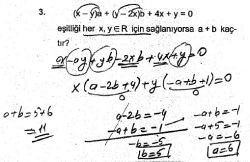 3. (x – y)a + (y – 2x)b + 4x + y = 0
eşitliği her x, y∈R için sağlanıyorsa a + b kaç-
tır?
ax - ay + yb - 2xb + 4x + y = 0
x(a-2b+4) + y(-a+b+1) = 0
a+b = 5+6
= 11
a-2b = -4
-a+b = -1
-b = -5
b = 5
-a+b = -1
-a+5 = -1
-a = -6
a = 6